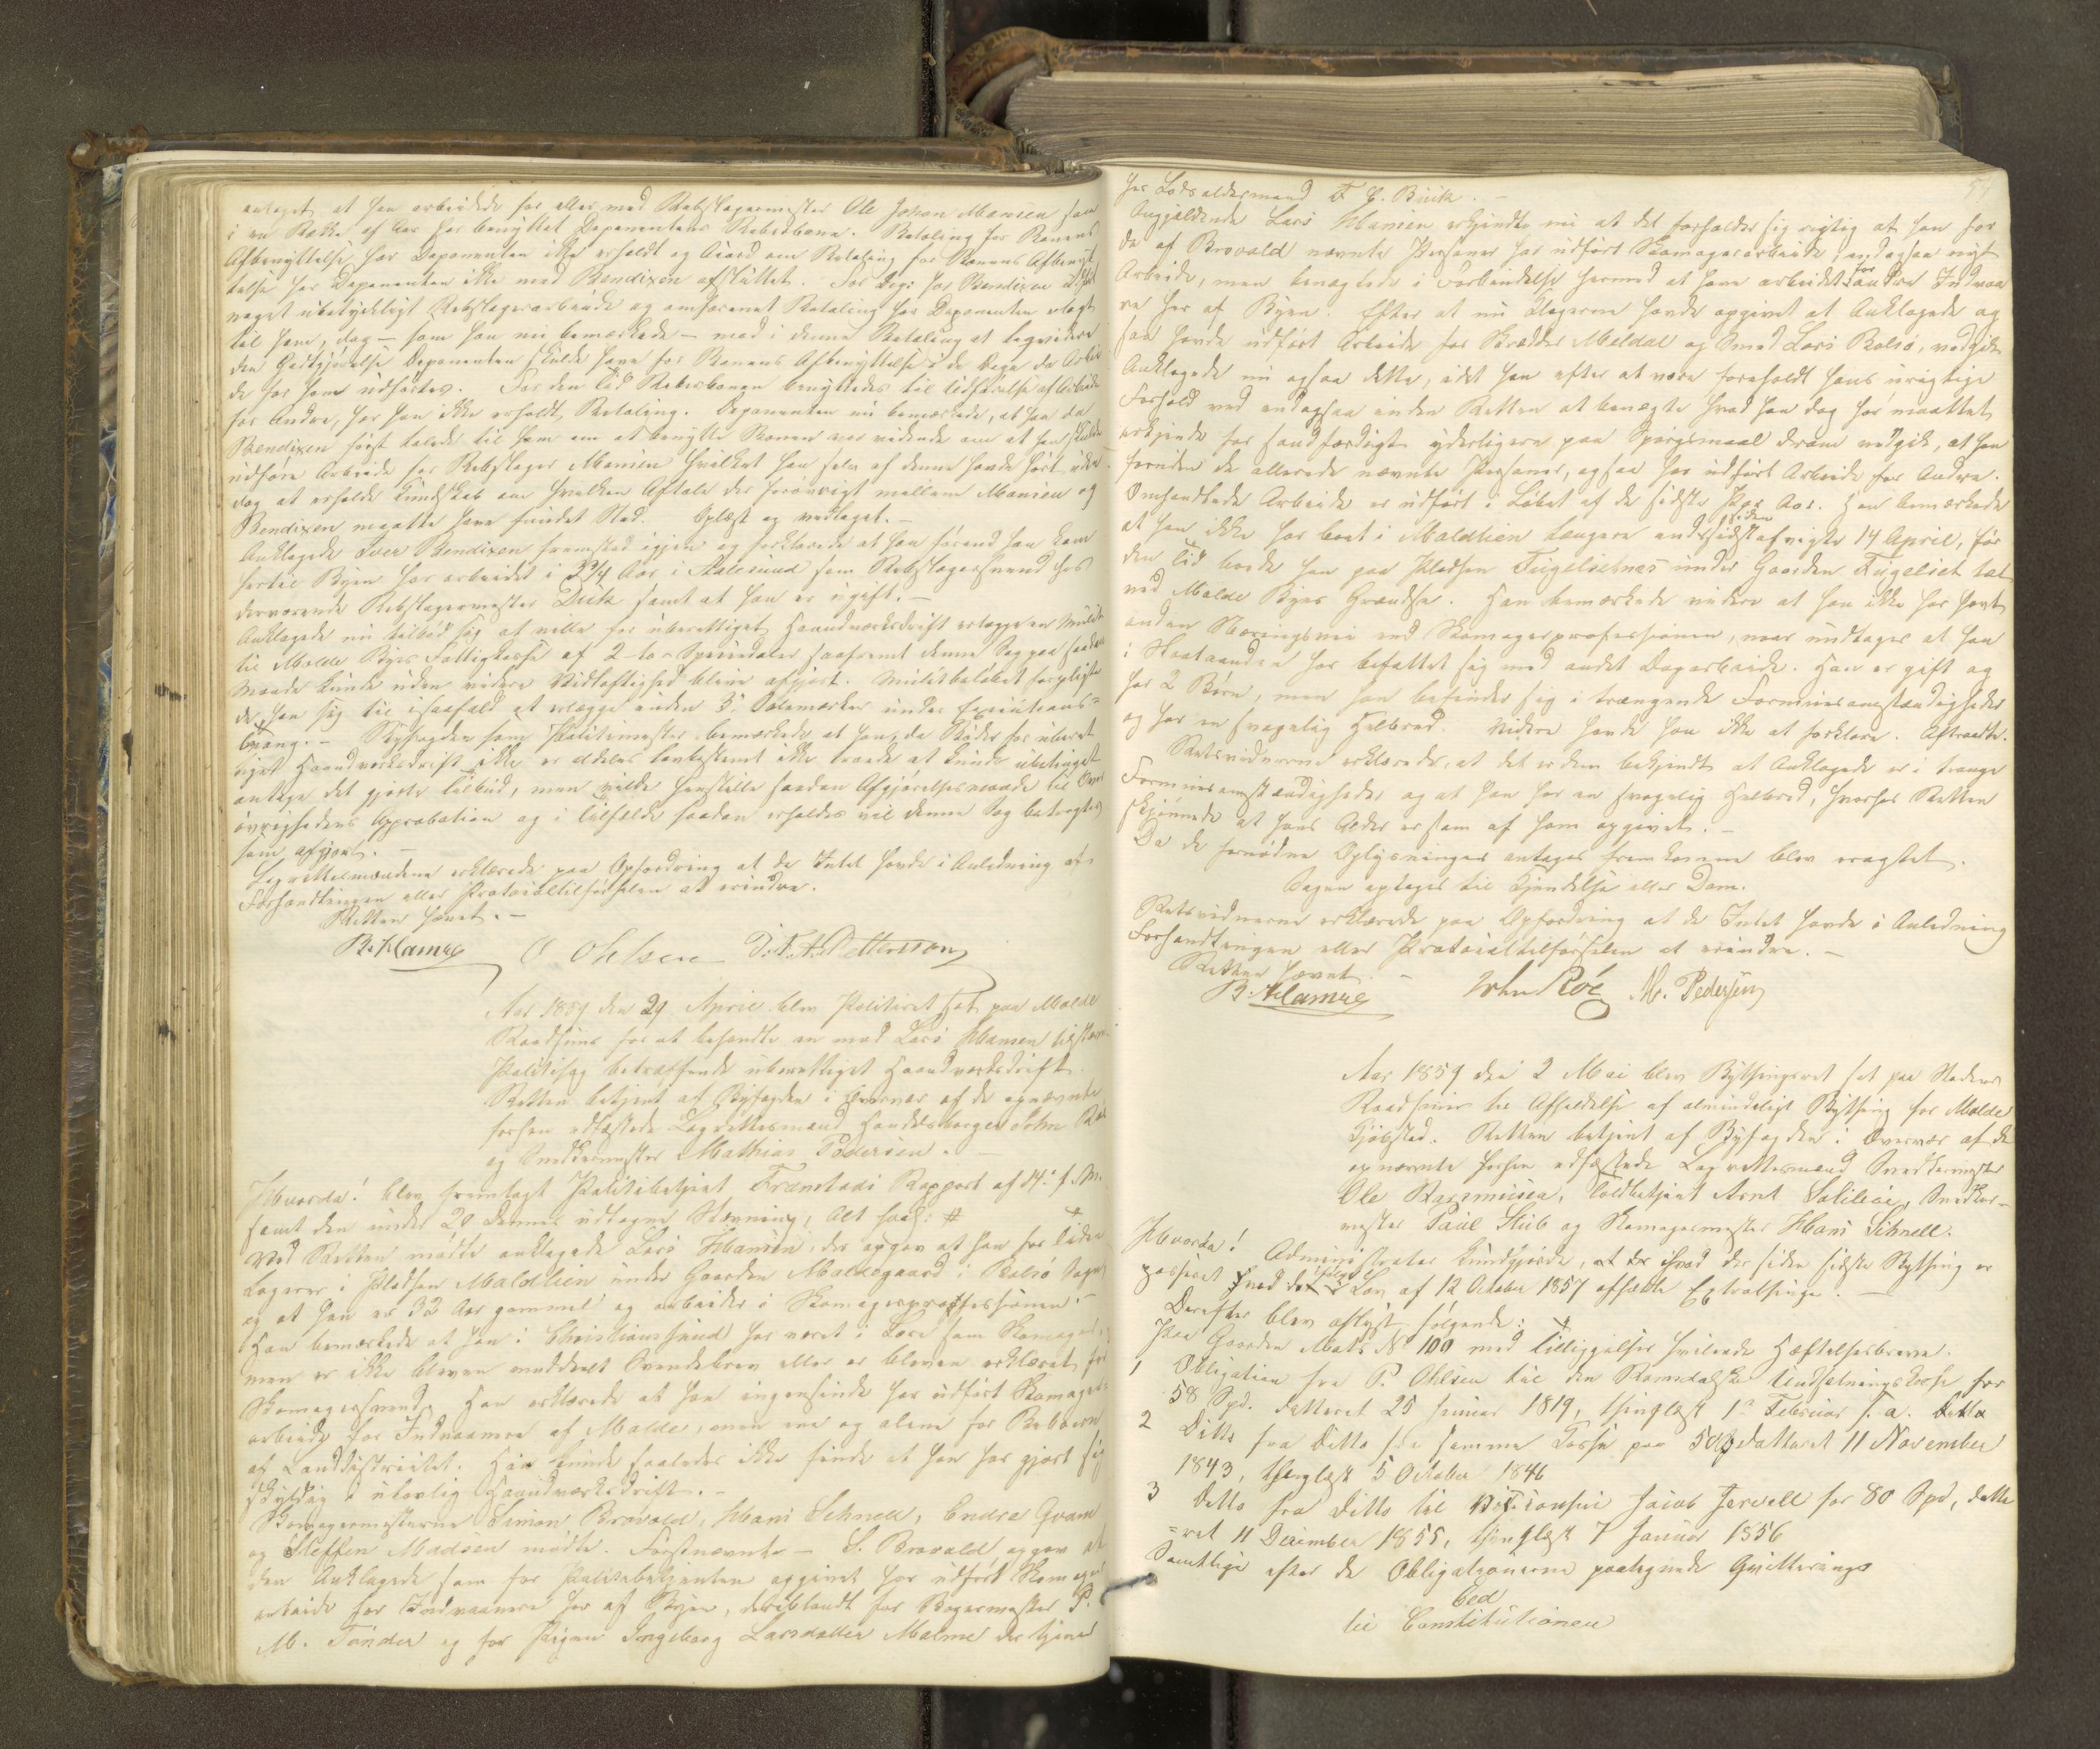 antaget at han arbeidede for eller med Rebslagermester Ole Johan Monsen som
i en Række af Aar har benyttet Deponentens Reberbane. Betaling for Banens
Afbenyttelse har Deponenten ikke erholdt og Accord om Betaling for Banens Afbenyt
telse har Deponenten ikke med Bendixen afsluttet. For Dep: har Bendixen
noget ubetydeligt Rebslagerarbeide og omforenet Betaling har Deponenten erlagt
til ham, dog – som han nu bemærkede – med i denne Betaling at liqvidere
den Godtgjørelse Deponenten skulde have for Banens Afbenyttelse i de Dage da Arbei
de for ham udførtes. For den Tid Reberbanen benyttedes til Udførelse af Arbeide
for Andre, har han ikke erholdt Betaling. Deponenten nu bemærkede, at han da
Bendixen først talede til ham om at benytte Banen var vidende om at han skulde
udføre Arbeide for Rebslager Monsen hvilket han selv af denne havde hørt, uden
dog at erholde Kundskab om hvilken Aftale der forøvrigt mellem Monsen og
Bendixen maatte have fundet Sted. Oplæst og vedtaget. –
Anklagede Iver Bendixen fremstod igjen og forklarede at han førend han kom
hertil Byen har arbeidet i 3 3/4 Aar i Aalesund som Rebslagersvend hos
derværende Rebslagermester Dick samt at han er ugift. –
Anklagede nu tilbød sig at ville for uberettiget Haandværksdrift erlægge en Mulct
til Molde Byes Fattigkasse af 2 – to – Speciedaler saafremt denne Sag paa saadan
Maade kunde uden videre Vidtløftighed blive afgjort. Mulctbeløbet forpligte
de han sig til isaafald at erlægge inden 3: Solemærker under Executions=
tvang. – Byfogden som Politimester bemærkede at han, da Bøder for uberet
tiget Haandværksdrift ikke er aldeles lovbestemt ikke troede at kunde ubetinget
antage det gjorte Tilbud, men vilde henstille saadan Afgjørelsesmaade til Over
øvrighedens Approbation og i Tilfælde saadan erholdes vil denne Sag betragtes
som afgjort. –
Lagrettesmændene erklærede paa Opfordring at de Intet havde i Anledning af
Forhandlingen eller Protocoltilførselen at erindre.
Retten hævet. –
B. Hamre O Ohlsen J. F. A. Pettersson
Aar 1859 den 29 April blev Politiret sat paa Molde
Raadhuus for at behandle en mod Lars Hansen
Politisag betræffende uberettiget Haandværksdrift.
Retten betjent af Byfogden i Overvær af de opnævnte
forhen edfæstede Lagrettesmænd Handelsborger John Röe
og Snedkermester Mathias Pedersen. –
Hvorda! blev fremlagt Politibetjent Framstads Rapport af 14: f. M.
samt den under 20 dennes udtagne Stævning, Alt saal: #
Ved Retten mødte anklagede Lars Hansen, der opgav at han for Tiden
logerer i Pladsen Moldelien under Gaarden Moldegaard i Bolsø Sogn
og at han er 32 Aar gammel og arbeider i Skomagerprofessionen. –
Han bemærkede at han i Christianssund har været i Lære som Skomager,
men er ikke bleven meddeelt Svendebrev eller er bleven erklæret for
Skomagersvend. Han erklærede at han ingensinde har udført Skomager-
arbeide for Indvaanere af Molde, men ene og alene for Beboere
af Landdistrictet. Han kunde saaledes ikke finde at han har gjort sig
skyldig i ulovlig Haandværksdrift. –
Skomagermesterne Simon Brovold, Hans Schnell, Endre Qvam
og Steffen Madsen mødte. Førstnævnte – S. Brovold opgav at
den Anklagede som for Politibetjenten opgivet har udført Skomager
arbeide for Indvaanere her af Byen, deriblandt for Bagermester P.
M. Tønder og for Pigen Ingeborg Larsdatter Malme der tjener
51
hos Lodsoldermand F E. Buck. –
Angjældende Lars Hansen erkjendte nu at det forholder sig rigtig at han for
de af Brovold nævnte Personer har udført Skomagerarbeide endogsaa nyt
Arbeide, men benægtede i Forbindelse hermed at have arbeidet for andre Indvaa
nere her af Byen. Efter at nu Klagerne havde opgivet at Anklagede og
saa havde udført Arbeide for Skrædder Meldal og Smed Lars Bolsø, vedgik
Anklagede nu ogsaa dette, idet han efter at være foreholdt hans urigtige
Forhold ved endogsaa inden Retten at benægte hvad han dog har maattet
erkjende for sandfærdigt yderligere paa Spørgsmaal derom vedgik, at han
foruden de allerede nævnte Personer, ogsaa har udført Arbeide for Andre.
Omhandlede Arbeide er udført i Løbet af de sidste Par Aar. Han bemærkede
at han ikke har boet i Moldelien længere end siden sidstafvigte 14 April, før
den Tid boede han paa Pladsen Fugelsetnæs under Gaarden Fugelset tæt
ved Molde Byes Grændse. Han bemærkede videre at han ikke har havt
anden Næringsvei end Skomagerprofessionen, naar undtages at han
i Vaaraanden har befattet sig med andet Dagarbeide. Han er gift og
har 2 Børn, men han befinder sig i trængende Formuesomstændigheder
og har en svagelig Helbred. Videre havde han ikke at forklare. Aftraadte.
Retsvidnerne erklærede, at det er dem bekjendt at Anklagede er i trange
Formuesomstændigheder og at han har en svagelig Helbred, hvorhos Retten
skjønnede at hans Alder er som af ham opgivet. –
Da de fornødne Oplysninger antages fremkomne blev eragtet.
Sagen optages til Kjendelse eller Dom.
Retsvidnerne erklærede paa Opfordring at de Intet havde i Anledning
Forhandlingen eller Protocoltilførselen at erindre. –
Retten hævet. –
B. Hamre John Röe M. Pedersen
Aar 1859 den 2 Mai blev Bythingsret sat paa Stedets
Raadhuus til Afholdelse af almindeligt Bything for Molde
Kjøbsted. Retten betjent af Byfogden i Overvær af de
opnævnte forhen edfæstede Lagrettesmænd Snedkermester
Ole Rasmussen, Toldbetjent Arnt Solilie, Snedker-
mester Paul Stub og Skomagermester Hans Schnell.
Hvorda! Administrator kundgjorde, at hvad der siden sidste Bything er
passeret ifølge Lov af 12 October 1857 afholdte Extrathinge. –
Derefter blev aflyst følgende:
Paa Gaarden Matr: No 100 med Tilliggelser heftende Hæftelsesbreve.
1 Obligation fra P. Ohlsen til den Romsdalske Undsetningskasse for
58 Spd. datteret 25 Januar 1819, thinglæst 1e Februar s. a.
2 Ditto fra Ditto til samme Kasse paa 50 Spd datteret 11 November
1843, thinglæst 5 October 1846
3 Ditto fra Ditto til Jacob Jervell for 80 Spd, datte
=ret 11 December 1855, thinglæst 7 Januar 1856
Samtlige efter de Obligationerne paategnede Qvitteringer
Eed
til Constitutionen